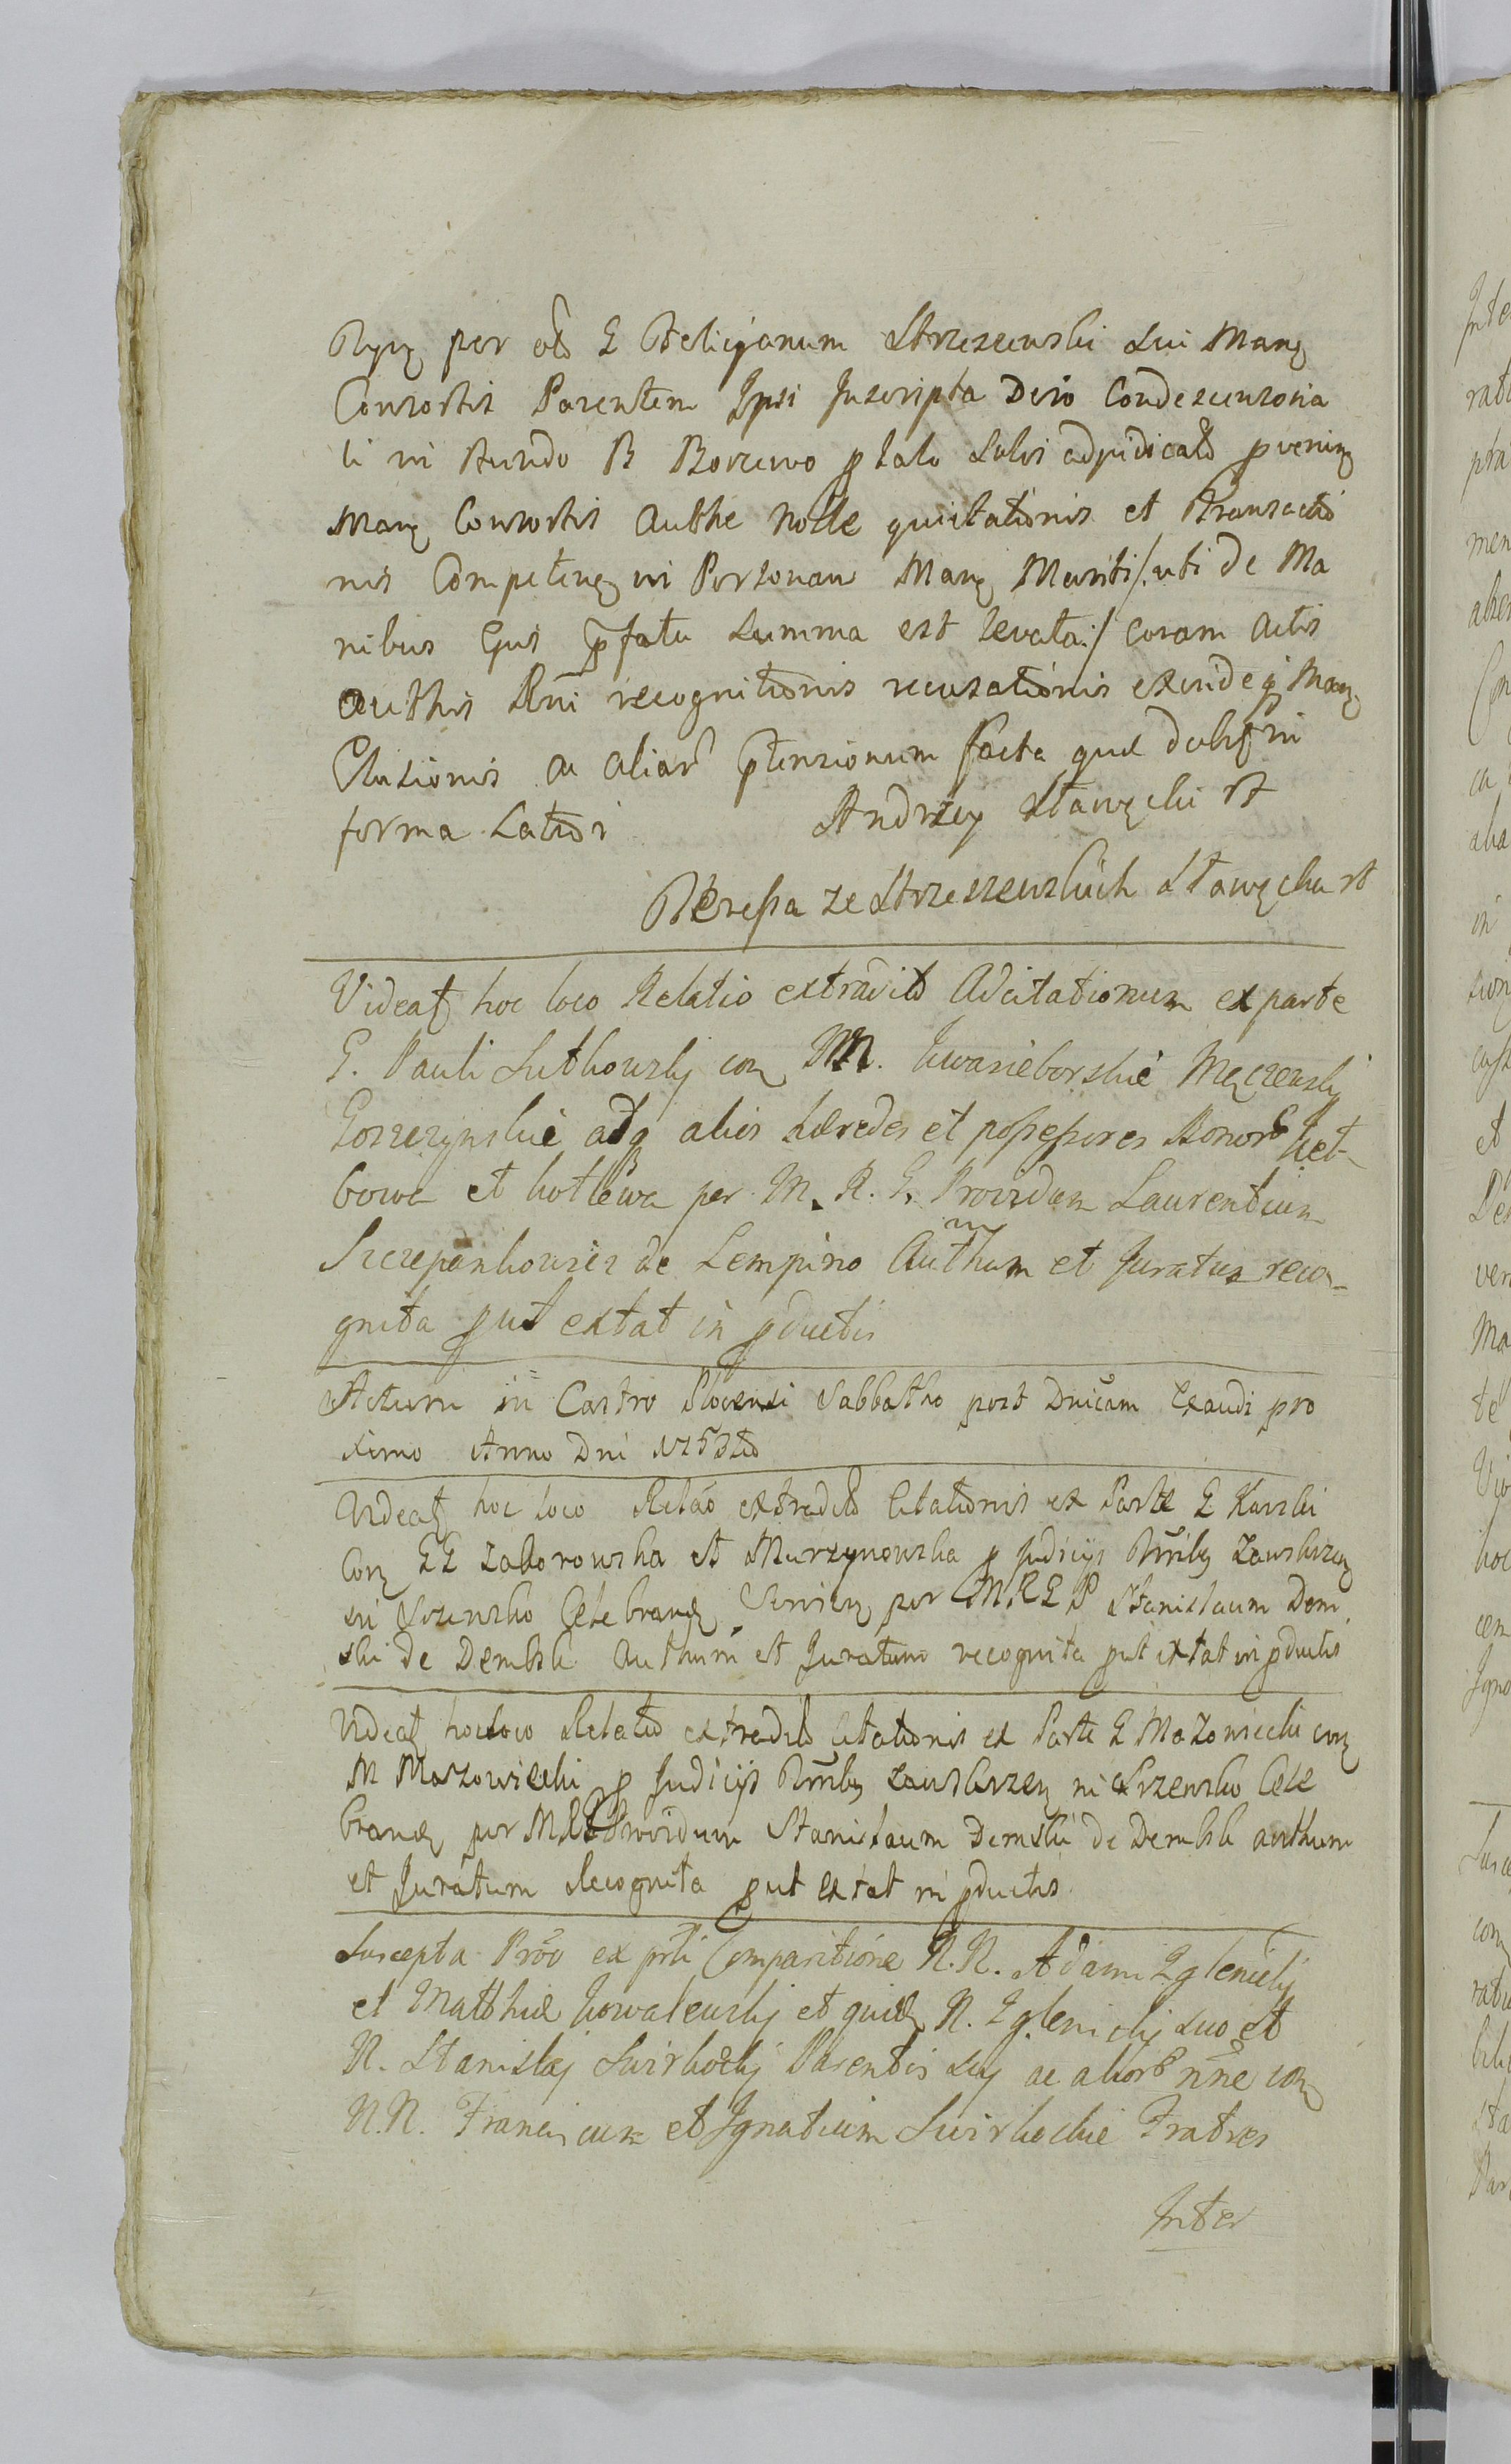 per olb G Felicyanum Strzeszewski sui Manq
Consortis Parentem Ipsi Inscripta Deīo Condescensoria
li in Fundo B Borzewo ꝑ lato Solvi adjudicato ꝓvenien
Manq Consortis Authe Nōie quietationis et Transactio
nis Competenq in Personam Manq Mariti /: uti de Ma
nibus Ejus ꝑfata Summa est levata :/ coram Actis
authis Rni recognitionis recusationis exinde q̨ Manq
Clusionis ac aliar̃ ꝑtensionum facta quæ dabitꝛ in
forma Latiōi Andrzey Stawęcki
Teressa ze Strzeszewskich Stawęcka
Videatꝛ hoc loco Relatio extradit̃ Adcitationum ex parte
G. Pauli Sutkowskj con MM. Kwasieborskie Męczenskj
Goszczynskie adq̨ alios Hæredes et possessores Bonorꝰ Ket-
bowa et Kotlewa per M. R. G. Providum Laurentium
Szczepankowicz de Lempino Authum et Juratum reco-
gnita ꝓut extat in ꝓductis
Actum in Castro Plocensi Sabbatho post Dnicam Exaudi pro
ximo Anno Dni 1753tio
Videatꝛ hoc loco Relao extradit̃ Citationis ex Parte G Karski
Con GG Zaborowska et Murzynowska ꝓ Judicijs Trrlibꝫ Zawskrzen
in Szrensko Celebranđ Servien per MRGP Stanislaum Dem
ski de Dembsk Authum et Juratum recognita ꝓut extat in ꝓductis
Videatꝛ hoc loco Relatio extradit̃ Citationis ex Parte G Mazowiecki con
M Mazowiecki ꝓ Judicijs Trrlibꝫ Zawskrzen in Szrensko Cele
branđ per MRG Providum Stanislaum Demski de Dembsk authum
et Juratum Recognita ꝓut extat in ꝓductis
Suscepta Prōo ex prti Comparitione N.N. Adami Zglenickj
et Matthiæ Kowalewskj et quidꝫ N. Zglenickj suo et
N. Stanislaj Swirkockj Parentis suj ac aliorꝰ nñe con
N.N. Franciscum et Ignatium Swirkockie Fratres
Inter